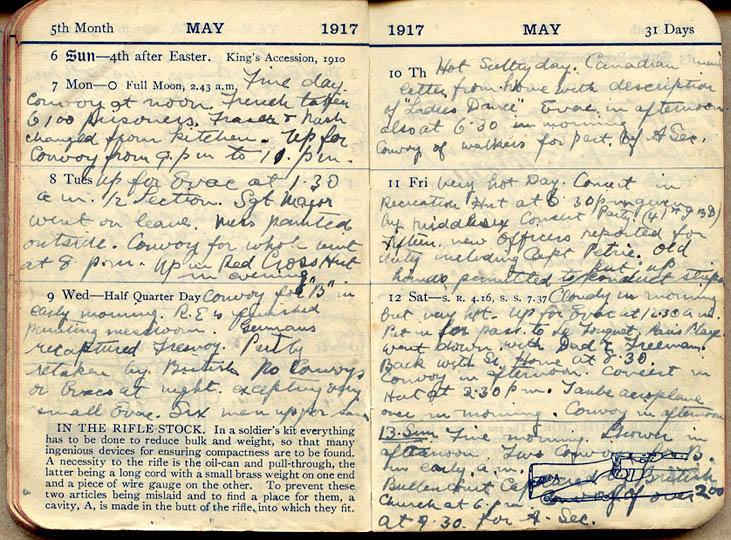 5th Month MAY 1917
6 Sun—4th after Easter. King's Accession, 1910
7 Mon—O Full Moon, 2.43 a.m. Fine day.
Convoy at noon. French taken
6,100 prisoners. Fraser & Nash
changed from kitchen. Up for
Convoy from 9 p.m to 11. p.m.
8 Tues Up for Evac at 1.30
a.m. ½ section. Sgt Major
went on leave. Mess painted
outside. Convoy for whole unit
at 8 p.m. Up in Red Cross Hut
in evening.
9 Wed—Half Quarter Day Convoy for "B" in
early morning. R.E's finished
painting messroom. Germans
recaptured Fresnoy. Partly
retaken by British. No Convoys
or Evacs at night. excepting very
small Evac. Six men upper
IN THE RIFLE-STOCK. In a soldier's kit everything
has to be done to reduce bulk and weight, so that many
ingenious devices for ensuring compactness are to be found.
A necessity to the rifle is the oil-can and pull-through, the
latter being a long cord with a small brass weight on one end
and a piece of wire gauge on the other. To prevent these
two articles being mislaid and to find a place for them, a
cavity, A, is made in the butt of the rifle, into which they fit.
1917 MAY 31 Days
10 Th Hot Sultry day. Canadian mail
letter from home with description
of "Ladies Dance". Evac in afternoon
also at 6.30 in morning
Convoy of walkers for part. of A Sec.
11 Fri Very hot Day. Concert in
Recreation Hut at 6 30 pm given
by middlesex Concert Party.
Fifteen new Officers reported for
duty including Capt Petrie. Old
hands permitted to put up conduct stripe
12 Sat—S. R. 4.16, S. S. 7.37 Cloudy in morning
but very hot. Up for Evac at 12.30 a.m.
Put in for pass. to Le Touquet, Paris Plage.
went down with Dad & Freeman.
Back with St. Home at 8.30.
Convoy in afternoon. Concert in
Hut at 2.30 p.m. Taube aeroplane
over in morning. Convoy in afternoon
13. Sun Fine morning. Shower in
afternoon. Two Convoys B.
in early a.m.
Bullencourt Captured by British
Convoy of over 200
Church at 6 p.m.
at 9.30. for A. Sec.
A